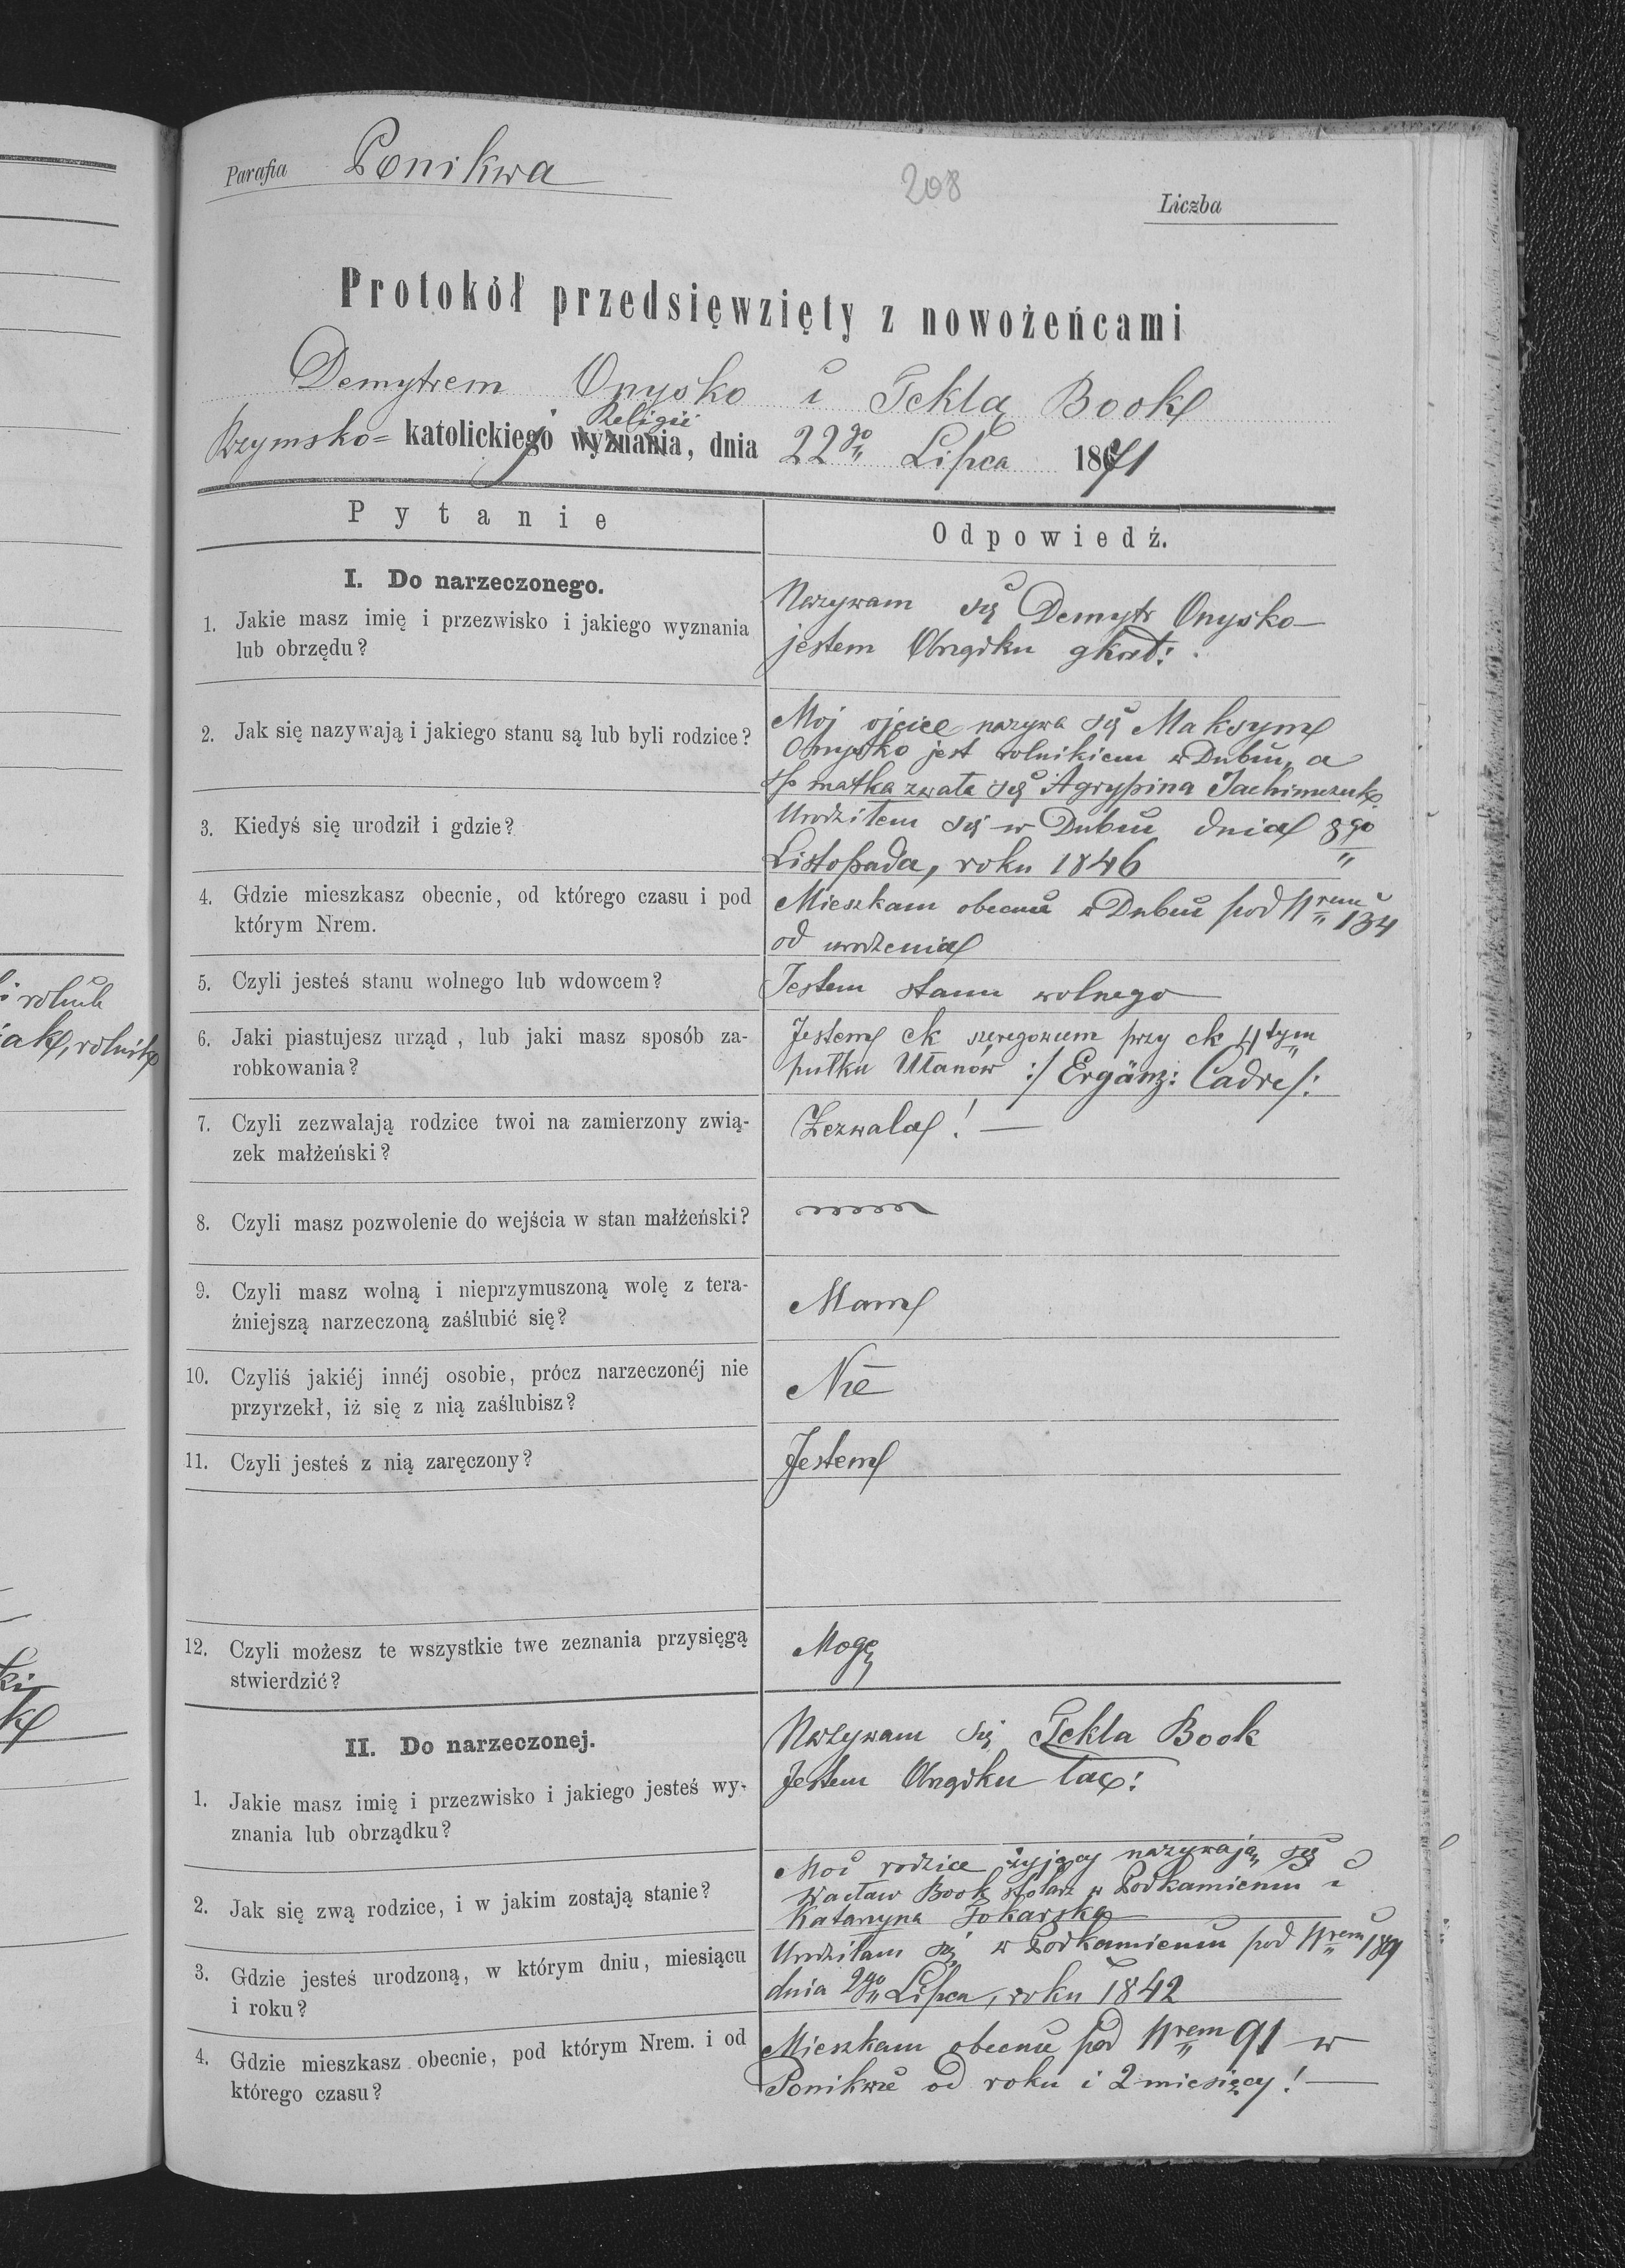 Parafia Ponikwa
208
Liczba
Protokół przedsięwzięty z nowożeńcami
Demytrem Onysko i Teklą Book
Religii
Rzymsko= katolickiego wyznania, dnia 22go Lipca 1871
Pytanie
Odpowiedź.
I. Do narzeczonego.
1. Jakie masz imię i przezwisko i jakiego wyznania
lub obrzędu?
Nazywam się Demytr Onysko
jestem Obrządku gkat:
2. Jak się nazywają i jakiego stanu są lub byli rodzice?
Moj ojciec nazywa się Maksym
Onysko jest rolnikiem w Dubiu, a
śp matka zwała się Agrypina Jachimczuk
3. Kiedyś się urodził i gdzie?
Urodziłem się w Dubiu dnia 8go
Listopada, roku 1846
4. Gdzie mieszkasz obecnie, od którego czasu i pod
którym Nrem.
Mieszkam obecnie w Dubiu pod Nrem 134
od urodzenia
5. Czyli jesteś stanu wolnego lub wdowcem?
Jestem stanu wolnego
6. Jaki piastujesz urząd, lub jaki masz sposób za-
robkowania?
Jestem ck szeregowcem przy ck 4tym
pułku Ułanów :/ Ergänz: Cadre/:
7. Czyli zezwalają rodzice twoi na zamierzony zwią-
zek małżeński?
Zezwala!
8. Czyli masz pozwolenie do wejścia w stan małżeński?
9. Czyli masz wolną i nieprzymuszoną wolę z tera-
źniejszą narzeczoną zaślubić się?
Mam
10. Czyliś jakiéj innéj osobie, prócz narzeczonéj nie
przyrzekł, iż się z nią zaślubisz?
Nie
11. Czyli jesteś z nią zaręczony?
Jestem
12. Czyli możesz te wszystkie twe zeznania przysięgą
stwierdzić?
Mogę
II. Do narzeczonej.
1. Jakie masz imię i przezwisko i jakiego jesteś wy-
znania lub obrządku?
Nazywam się Tekla Book
Jestem Obrządku łac:
2. Jak się zwą rodzice, i w jakim zostają stanie?
Moi rodzice żyjący nazywają się
Wacław Book stolarz w Podkamieniu i
Katarzyna Tokarska
3. Gdzie jesteś urodzoną, w którym dniu, miesiącu
i roku?
Urodziłam się w Podkamieniu pod Nrem 189
dnia 2go Lipca, roku 1842
4. Gdzie mieszkasz obecnie, pod którym Nrem. i od
którego czasu?
Mieszkam obecnie pod Nrem 91 w
Ponikwie od roku i 2 miesięcy!